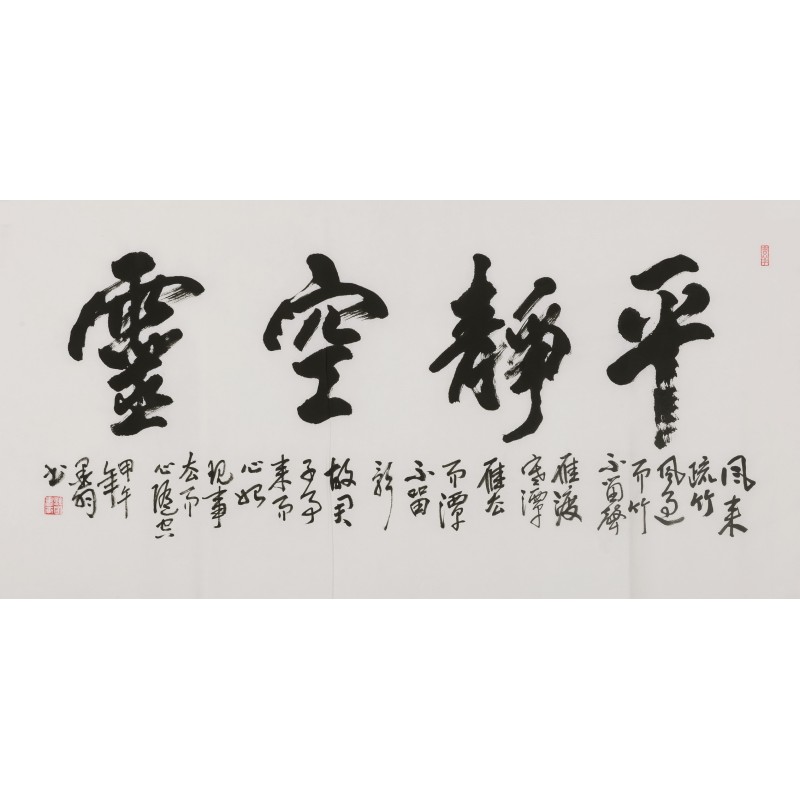 平靜空靈
風來
疏竹
風過
而竹
不留聲
雁渡
寒潭
雁去
而潭
不留
影
故君
子事
來而
心始
現事
去而
心隨空
甲午
年
墨翁
書